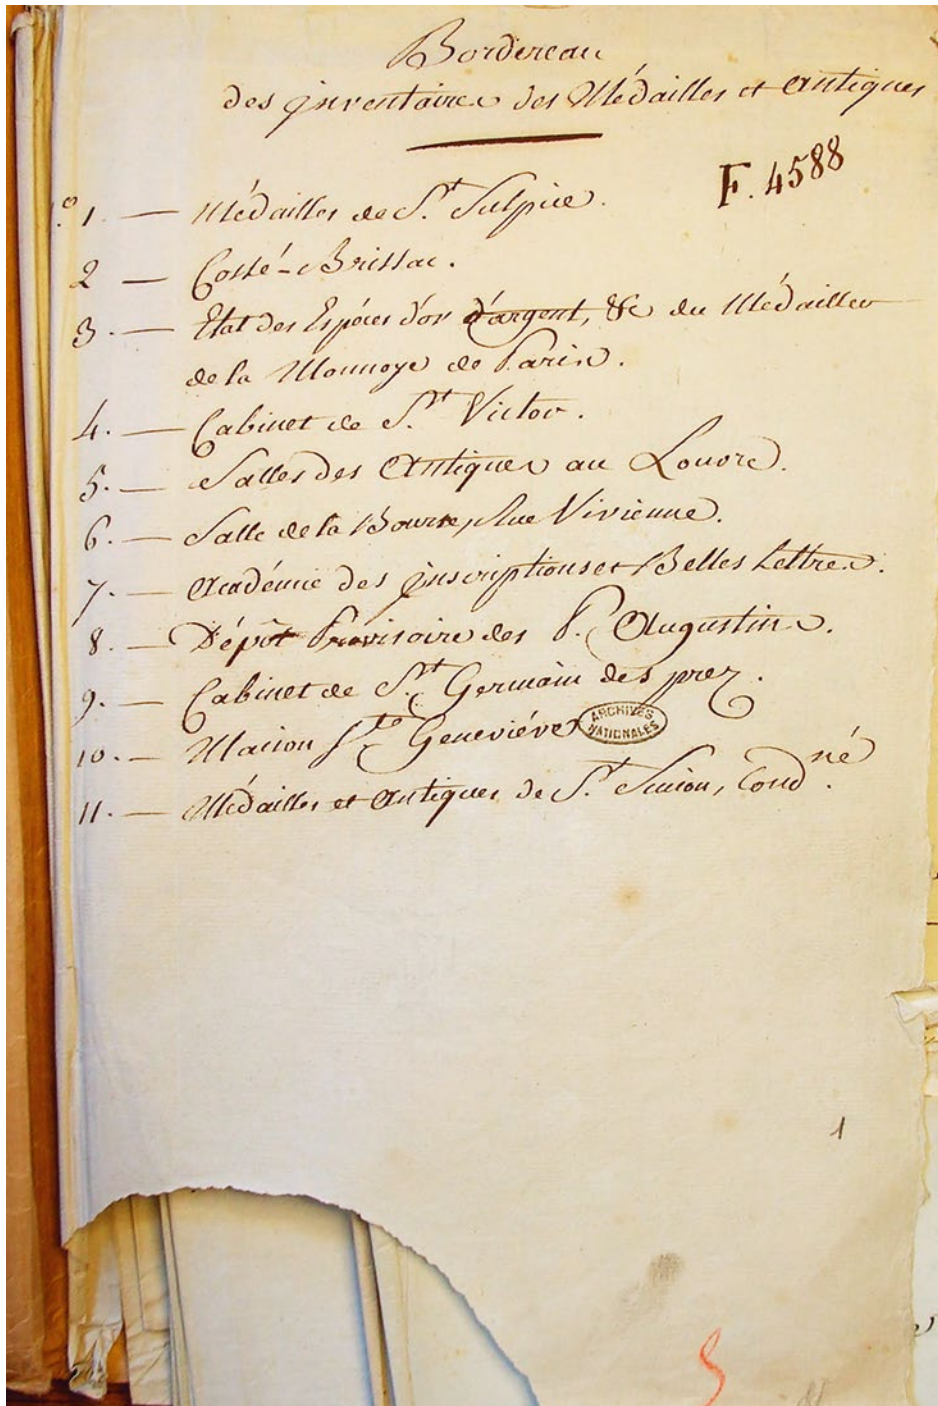 Bordereau
des inventaires des Médailles et Antiques
F. 4588
.o 1. — Médailles de St. Sulpice.
2 — Cossé-Brissac.
3. — Etat des Espèces d'or d'argent, &c du Médailler
de la Monnoye de Paris.
4. — Cabinet de St. Victor.
5. — Salles des Antiques au Louvre.
6. — Salle de la Bourse, Rue Vivienne.
7. — Académie des inscriptions et Belles Lettres.
8. — Dépôt Provisoire des P. Augustins.
9. — Cabinet de St. Germain des prez.
ARCHIVES
NATIONALES
10. — Maison Ste Geneviéve
11. — Médailles et Antiques de St. Simon, Condné.
1